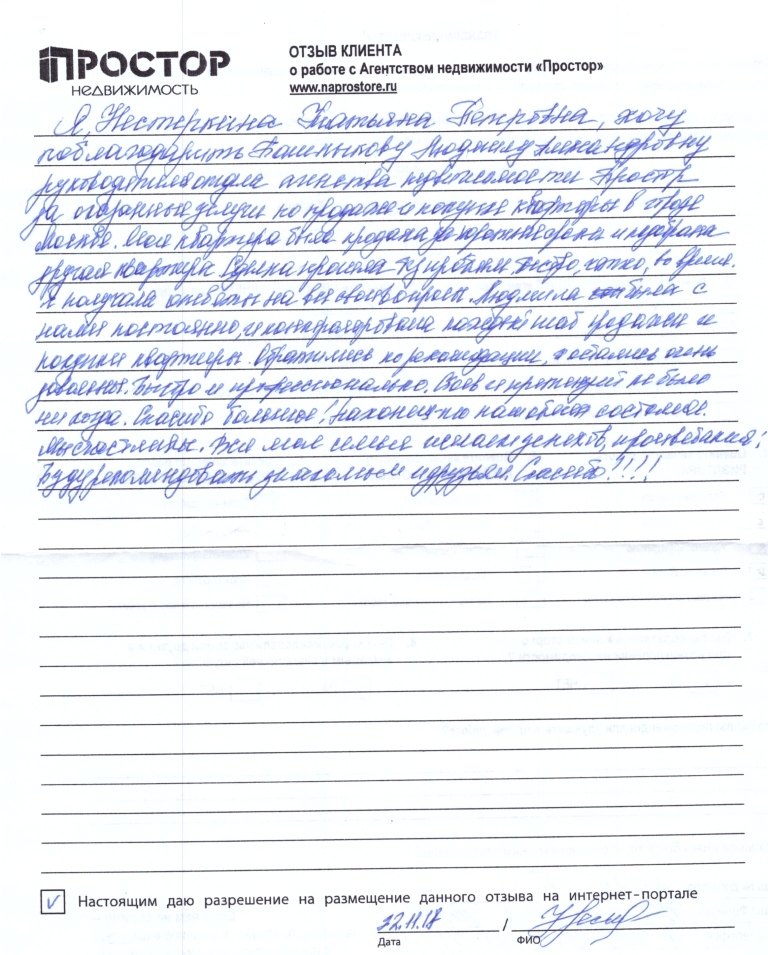 ПРОСТОР
НЕДВИЖИМОСТЬ
ОТЗЫВ КЛИЕНТА
о работе с Агентством недвижимости «Простор»
www.naprostore.ru
Я, Нестеркина Татьяна Петровна, хочу
поблагодарить Людмилу Александровну
руководителя отдела агенства недвижимости Простор
за оказанные услуги по продаже и покупке квартиры в городе
Москве. Моя квартира была продана за короткие сроки и подобрана
другая квартира. Сделка прошла быстро, четко, во время.
Я получала ответы на все свои вопросы. Людмила была с
нами постоянно, и контролировала продажи и
покупки квартиры. Обратились по рекомендации, и остались очень
довольны. Быстро и профессионально. Сбоев и претензий не было
никогда. Спасибо большое! Наконец-то наш обмен состоялся.
Мы счастливы. Вся моя семья желает успехов, процветания!
Буду рекомендовать знакомым и друзьям. Спасибо!!!!
Настоящим даю разрешение на размещение данного отзыва на интернет-портале
/
Дата
ФИО